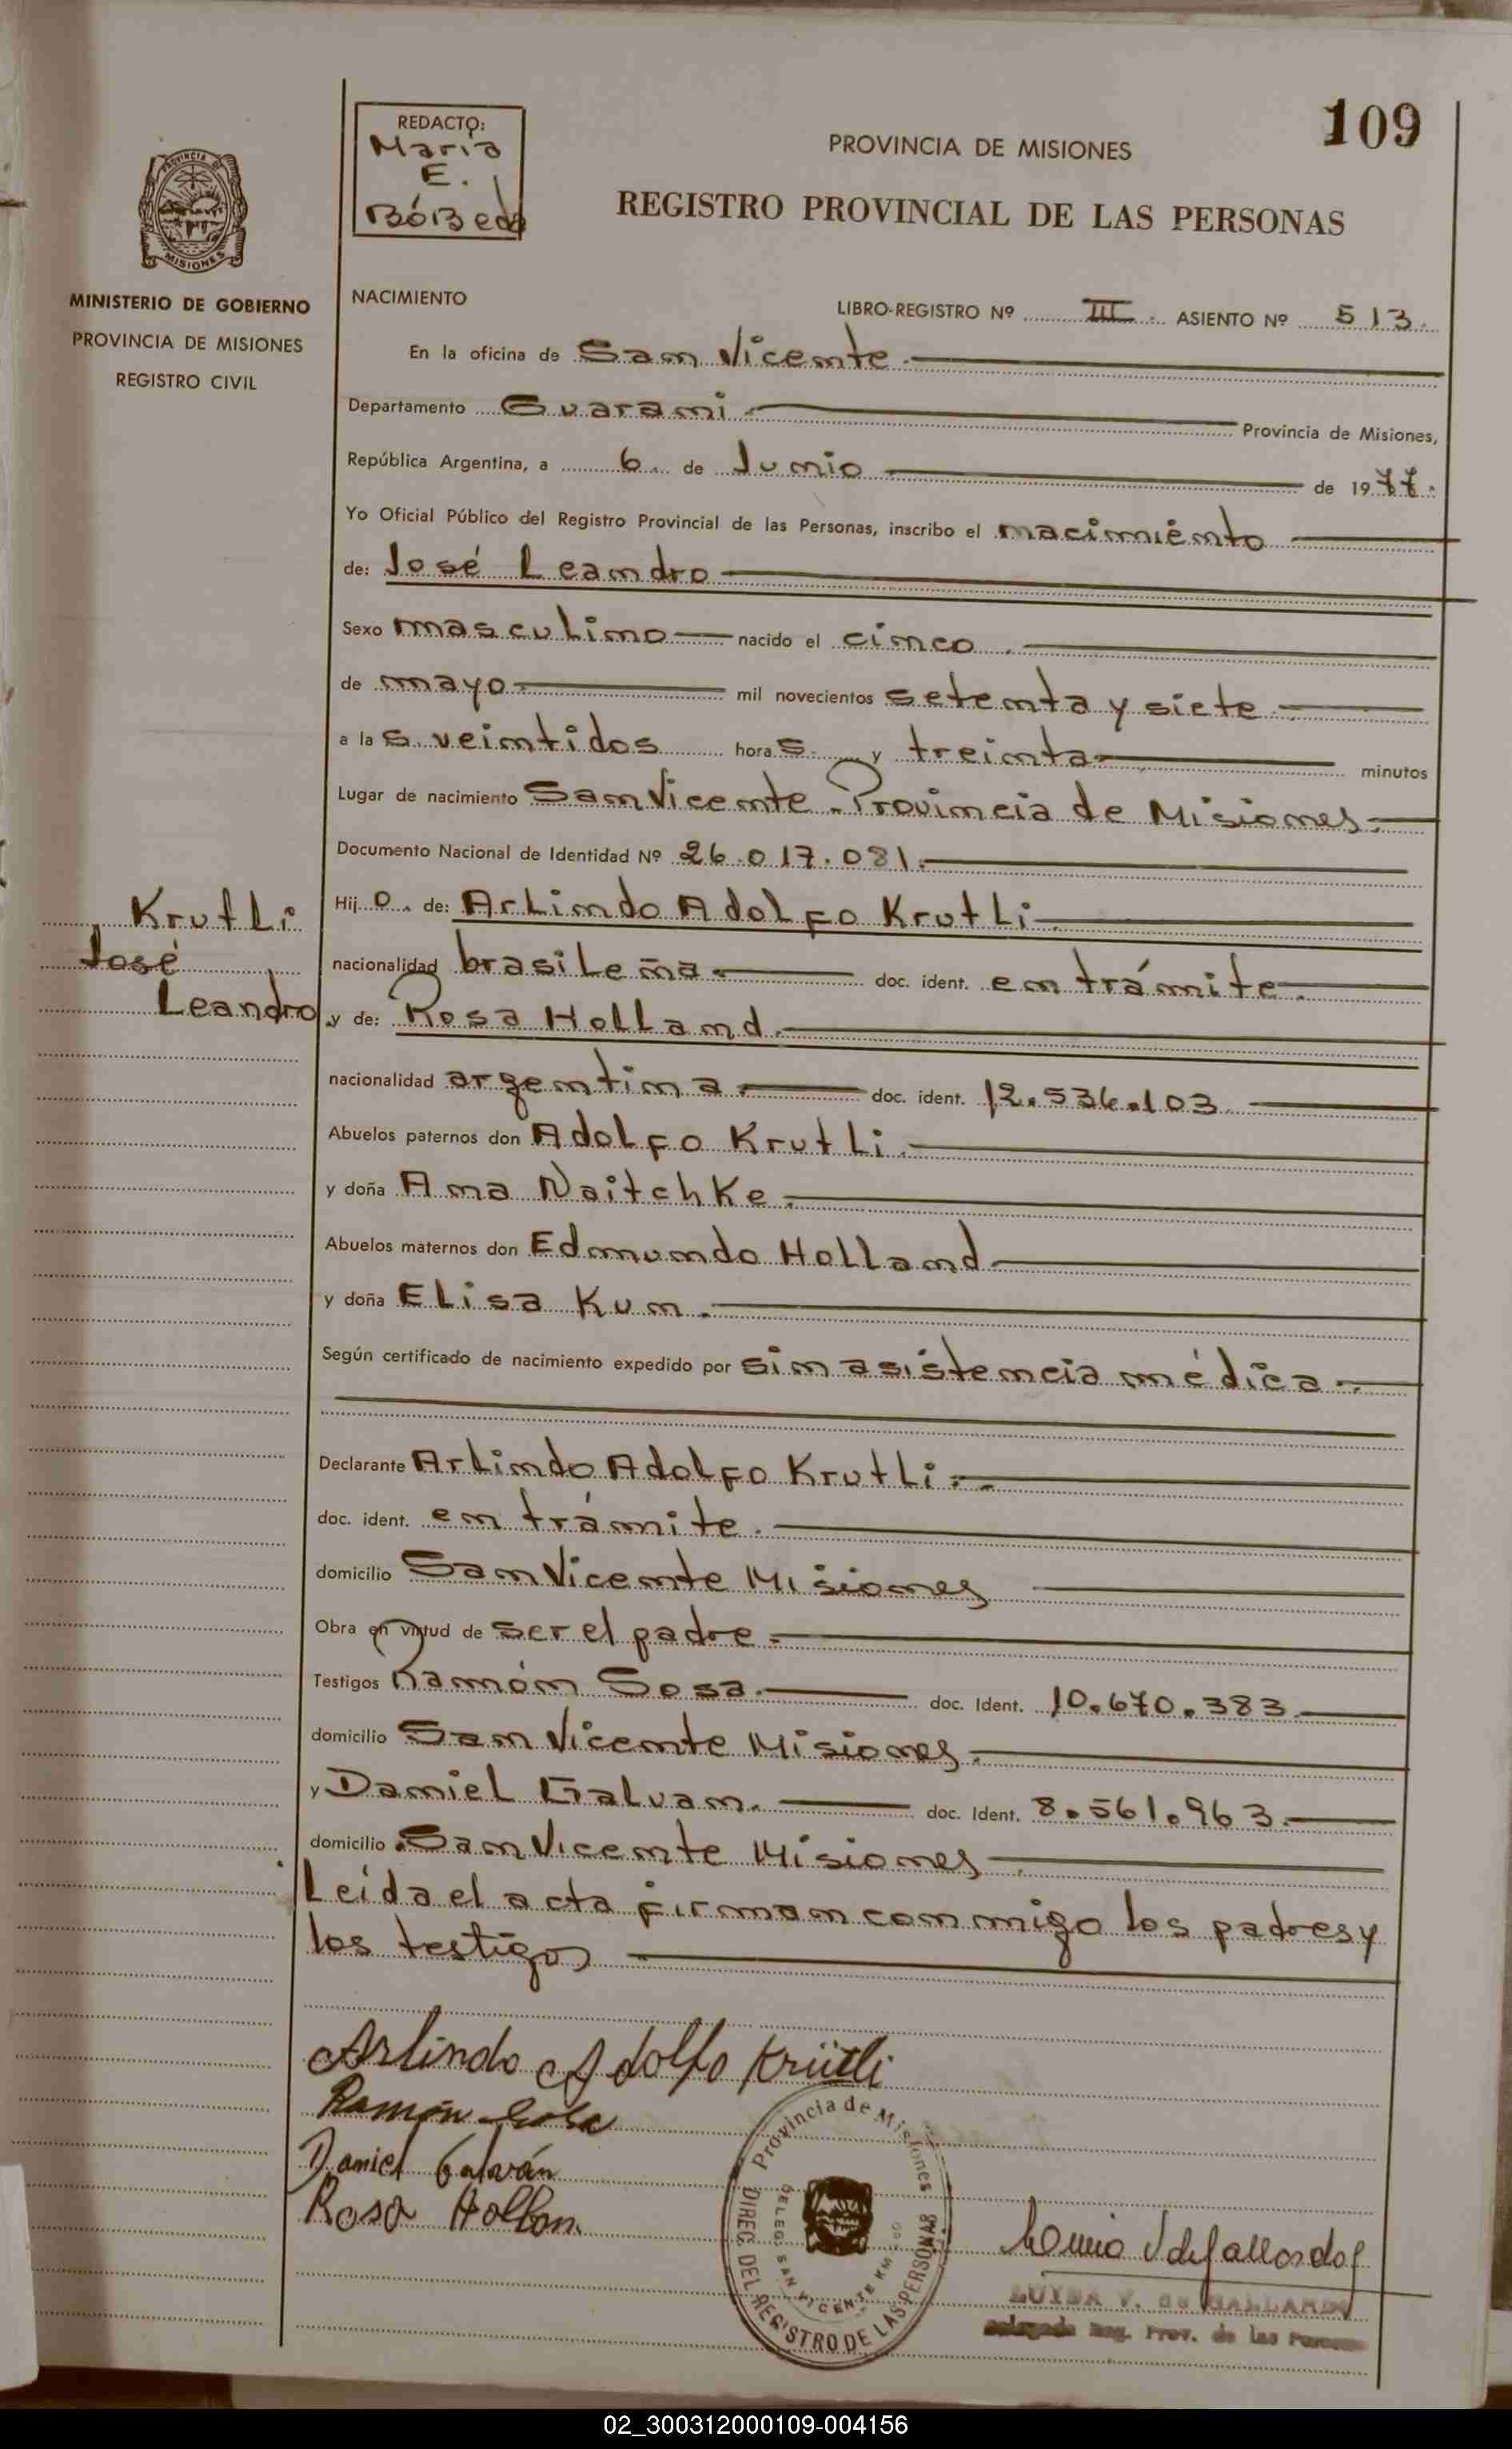 109
REDACTO:
Maria
E.
BóBeda
PROVINCIA DE MISIONES
REGISTRO PROVINCIAL DE LAS PERSONAS
PROVINCIA DE
MISIONES
MINISTERIO DE GOBIERNO
PROVINCIA DE MISIONES
REGISTRO CIVIL
NACIMIENTO
LIBRO-REGISTRO Nº III. ASIENTO Nº 513.
En la oficina de San Vicente.
Departamento Guarani. Provincia de Misiones,
República Argentina, a 6. de Junio de 1977.
Yo Oficial Público del Registro Provincial de las Personas, inscribo el nacimiento
de: José Leandro
Sexo masculino nacido el cinco
de mayo mil novecientos setenta y siete
a las veintidos horas. y treinta minutos
Lugar de nacimiento San Vicente. Provincia de Misiones.
Documento Nacional de Identidad Nº 26.017.081.
Krutli
José
Leandro
Hijo. de: Arlindo Adolfo Krutli.
nacionalidad brasileña doc. ident. en trámite.
y de: Rosa Holland.
nacionalidad argentina doc. ident. 12.536.103
Abuelos paternos don Adolfo Krutli.
y doña Ana Naitchke.
Abuelos maternos don Edmundo Holland
y doña Elisa Kun.
Según certificado de nacimiento expedido por sin asistencia médica.
Declarante Arlindo Adolfo Krutli.
doc. ident. en trámite.
domicilio San Vicente Misiones
Obra en virtud de ser el padre.
Testigos Ramón Sosa. doc. Ident. 10.670.383
domicilio San Vicente Misiones.
y Daniel Galvan. doc. Ident. 8.561.963.
domicilio San Vicente Misiones
Leída el acta firman conmigo los padres y
los testigos
Arlindo Adolfo Krütli
Ramón Sosa
Daniel Galván
Rosa Hollan.
Provincia de Misiones
DIREC. DEL REGISTRO DE LAS PERSONAS
DELEG. SAN VICENTE KM
LUISA V. de GALLARDO
Delegada Reg. Prov. de las Personas
02_300312000109-004156